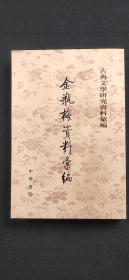 古典文學研究資料彙編
金瓶梅資料彙編
中華書局